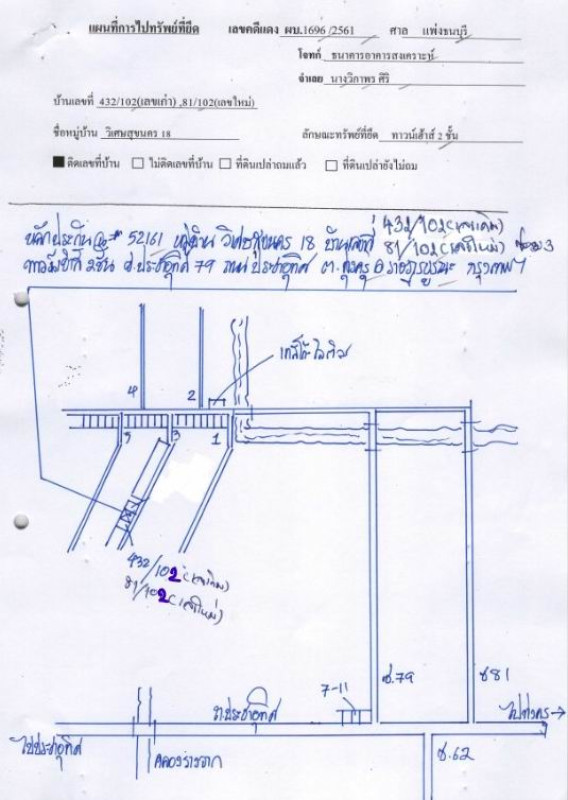 แผนที่การไปทรัพย์ที่ยึด เลขคดีแดง ผบ.1696 /2561 ศาล แพ่งธนบุรี
โจทก์ ธนาคารอาคารสงเคราะห์
จำเลย นางวิภาพร ศิริ
บ้านเลขที่ 432/102(เลขเก่า) ,81/102(เลขใหม่)
ชื่อหมู่บ้าน วิเศษสุขนคร 18 ลักษณะทรัพย์ที่ยึด ทาวน์เฮ้าส์ 2 ชั้น
ติดเลขที่บ้าน ไม่ติดเลขที่บ้าน ที่ดินเปล่าถมแล้ว ที่ดินเปล่ายังไม่ถม
432/102(เลขเดิม)
52161 วิเศษสุขนคร 18 บ้านเลขที่ 81/102(เลขใหม่) ซอย 3
2ชั้น ซ.ประชาอุทิศ 79 ถนน ประชาอุทิศ ต.ทุ่งครุ อ.ราษฎร์บูรณะ กรุงเทพฯ
4
2
5
3
1
432/102(เลขเดิม)
81/102(เลขใหม่)
ซ.79
ซ81
7-11
ถ.ประชาอุทิศ
ไปประชาอุทิศ
ซ.62